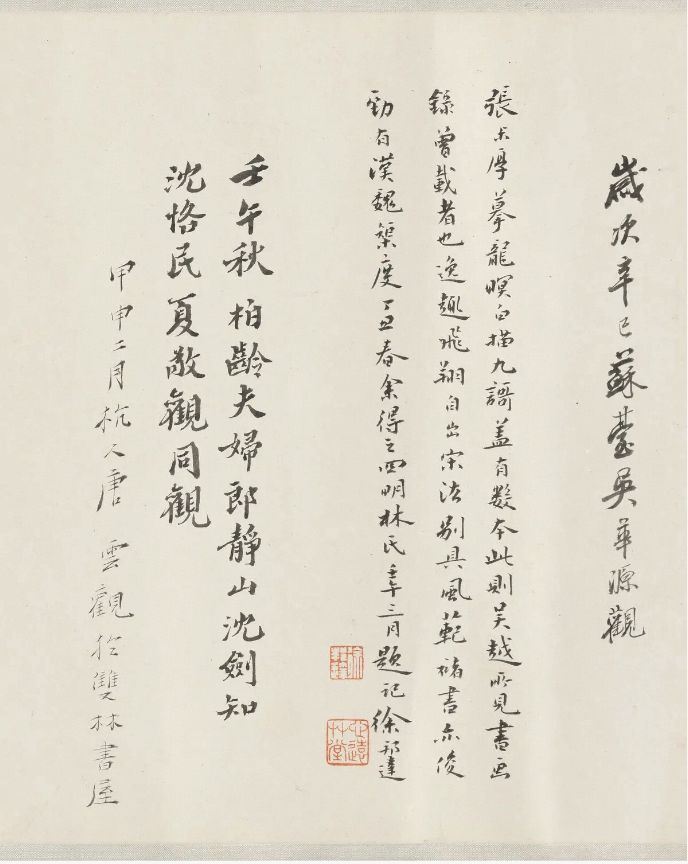 歲次辛巳蘇臺吳華源觀
張未厚摹龍暝白描九謌蓋有數本此則吴越所見書画
錄曾載者也逸趣飛翔自出宗法别具風範褚書亦俊
勁有漢魏榘度丁丑春余得之四明林氏壬午三月題記徐邦達
壬午秋柏齡夫婦郎靜山沈劍知
沈恪民夏敬觀同觀
甲申二月杭人唐雲觀於雙林書屋
心遠艸堂